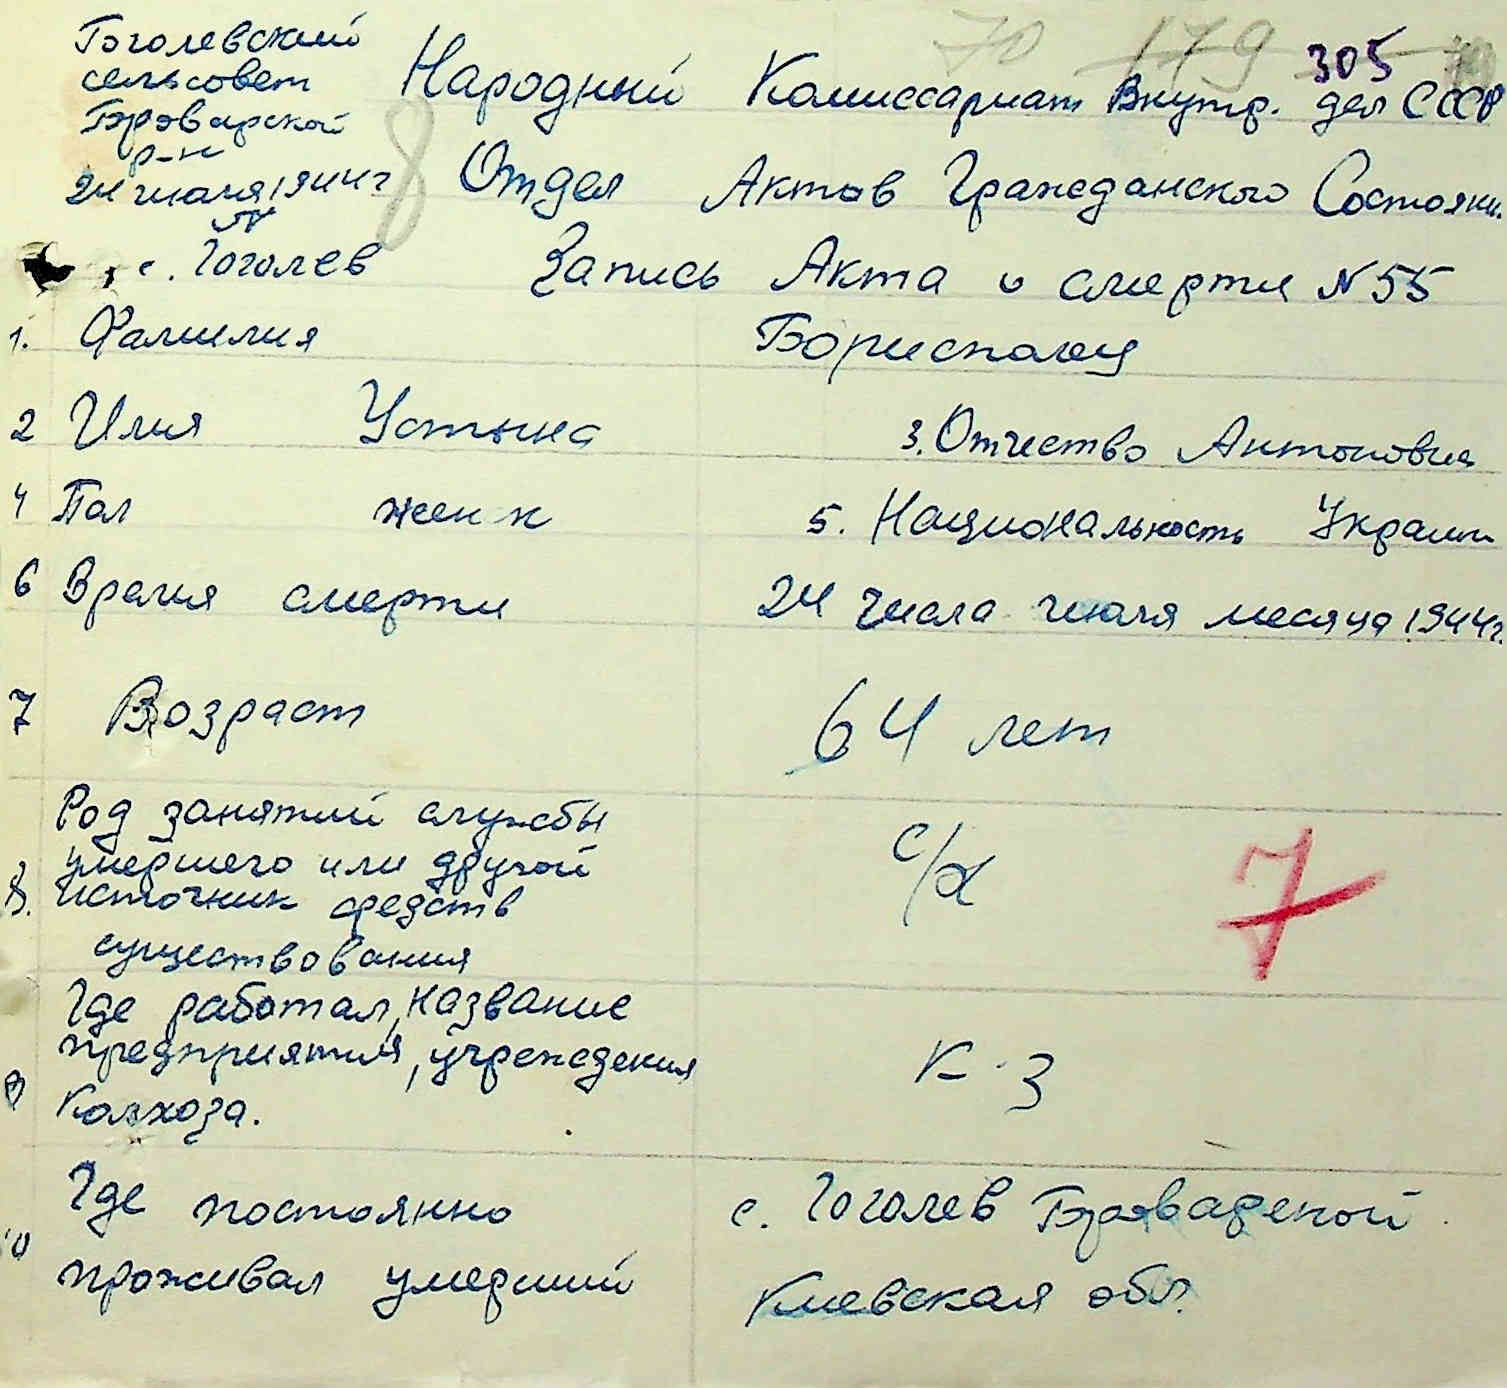 70 179 305
Гоголевский
сельсовет
Броварской
р-н
24 июля 1944 г
с. Гоголев
8
Народный Комиссариат Внутр. дел СССР
Отдел Актов Гражданского Состояни.
Запись Акта о смерти N 55
1. Фамилия
2 Имя Устына 3. Отчество Антоновна
4 Пол женск 5. Национальность Украин
6 Время смерти 24 числа июля месяца 1944 г.
7 Возраст 64 лет
8. Род занятий службы
умершего или другой
источник средств
существования
с/х 7
9 Где работал, название
предприятия, учреждения
Колхоза.
К-З
10 Где постоянно
проживал умерший
с. Гоголев Броварской
Киевская обл.